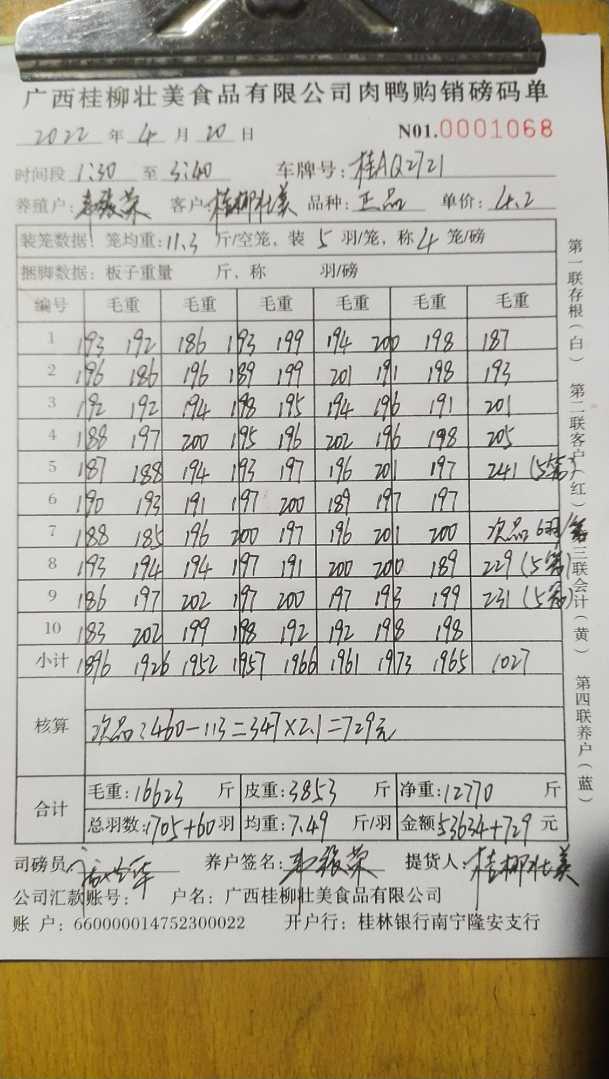 广西桂柳壮美食品有限公司肉鸭购销磅码单
2022 年 4 月 20 日 N01.0001068
时间段 1:30 至 3:40 车牌号: 桂AQ2721
养殖户: 韦毅荣 客户: 桂柳壮美 品种: 正品 单价: 4.2
装笼数据: 笼均重: 11.3 斤/空笼, 装 5 羽/笼, 称 4 笼/磅
捆脚数据: 板子重量 斤, 称 羽/磅
编号 毛重 毛重 毛重 毛重 毛重 毛重
1 193 192 186 193 199 194 200 198 187
2 196 186 196 189 199 201 191 198 193
3 192 192 194 198 195 194 196 191 201
4 188 197 200 195 196 202 196 198 205
5 187 188 194 193 197 196 201 197 241 (5笼)
6 190 193 191 197 200 189 197 197
7 188 185 196 200 197 196 201 200 次品 6羽/笼
8 193 194 194 197 191 200 200 189 229 (5笼)
9 186 197 202 197 200 197 193 199 231 (5笼)
10 183 202 199 198 192 192 198 198
小计 1896 1926 1952 1957 1966 1961 1973 1965 1027
核算 次品: 460-113=347×2.1=729元
合计 毛重: 16623 斤 皮重: 3853 斤 净重: 12770 斤
总羽数: 1705+60 羽 均重: 7.49 斤/羽 金额 53634+729 元
司磅员: 养户签名: 韦毅荣 提货人: 桂柳壮美
公司汇款账号: 户名: 广西桂柳壮美食品有限公司
账 户: 660000014752300022 开户行: 桂林银行南宁隆安支行
第一联存根(白) 第二联客户(红) 第三联会计(黄) 第四联养户(蓝)